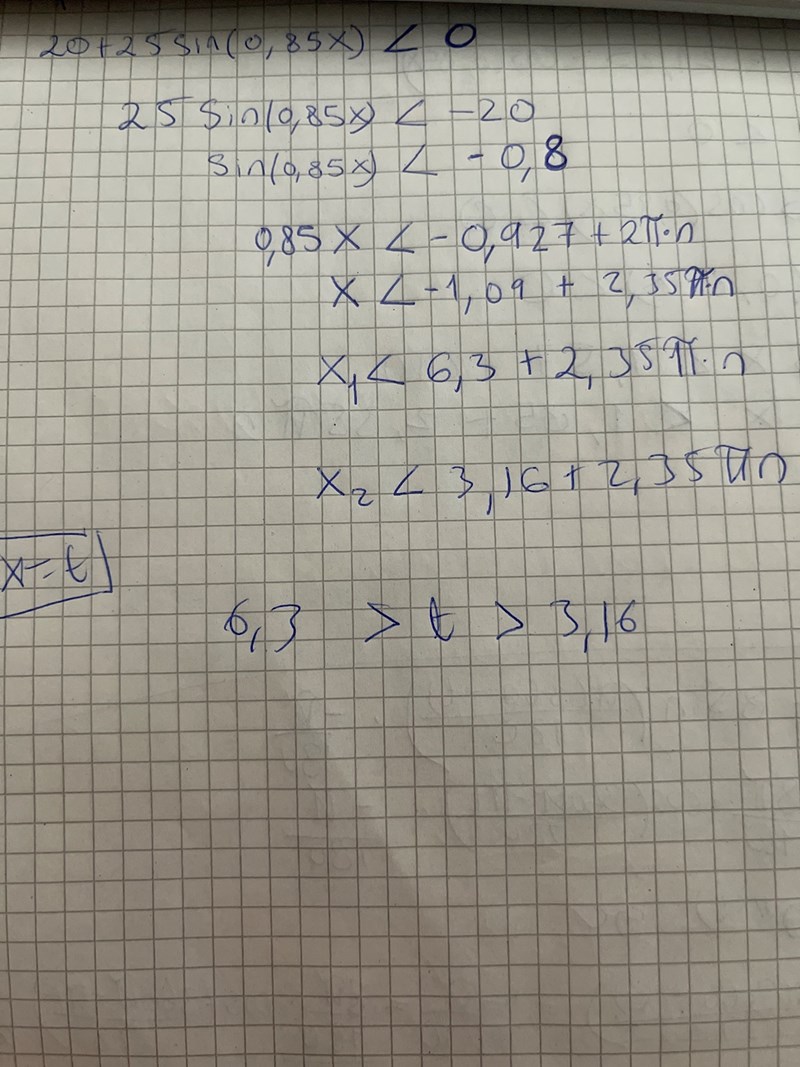 20+25sin(0,85x) < 0
25 sin(0,85x) < -20
sin(0,85x) < -0,8
0,85x < -0,927 + 2π·n
x < -1,09 + 2,35π·n
x₁ < 6,3 + 2,35π·n
x₂ < 3,16 + 2,35πn
x=t
6,3 > t > 3,16